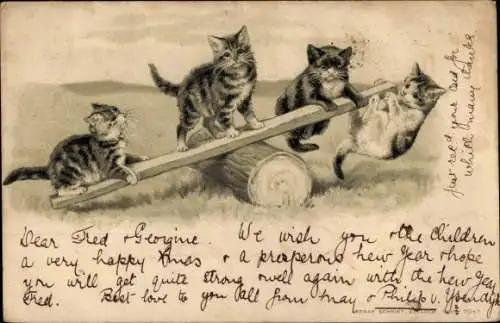 just recd your card for
which many thanks
Dear Fred & Georgine. We wish you & the children
a very happy Xmas & a prosperous new Year & hope
you will get quite strong & well again with the new Year
Fred. Best love to you all from May & Philip v.